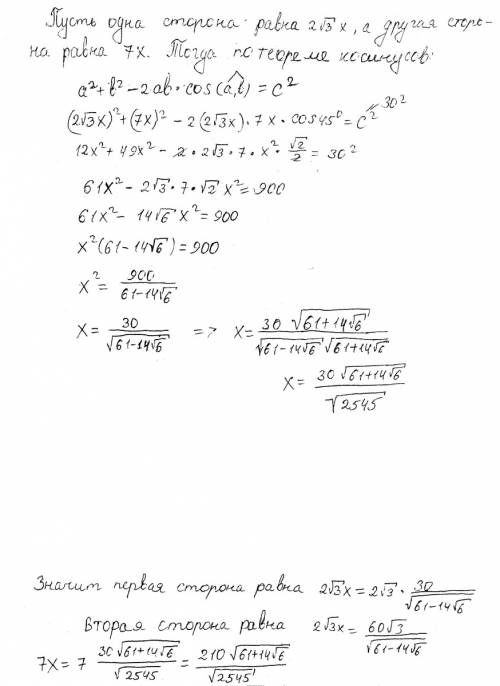 Пусть одна сторона равна 2√3 x, а другая сторо-
на равна 7x. Тогда по теореме косинусов:
a² + b² - 2ab · cos(a,b) = c²
(2√3x)² + (7x)² - 2(2√3x) · 7x · cos45° = c² 30²
12x² + 49x² - 2 · 2√3 · 7 · x² · √2/2 = 30²
61x² - 2√3 · 7 · √2 x² = 900
61x² - 14√6 x² = 900
x²(61 - 14√6) = 900
x² = 900/(61-14√6)
x = 30/√(61-14√6) => x = 30√(61+14√6)/(√(61-14√6)√(61+14√6))
x = 30√(61+14√6)/√2545
Значит первая сторона равна 2√3x = 2√3 · 30/√(61-14√6)
Вторая сторона равна 2√3x = 60√3/√(61-14√6)
7x = 7 30√(61+14√6)/√2545 = 210√(61+14√6)/√2545